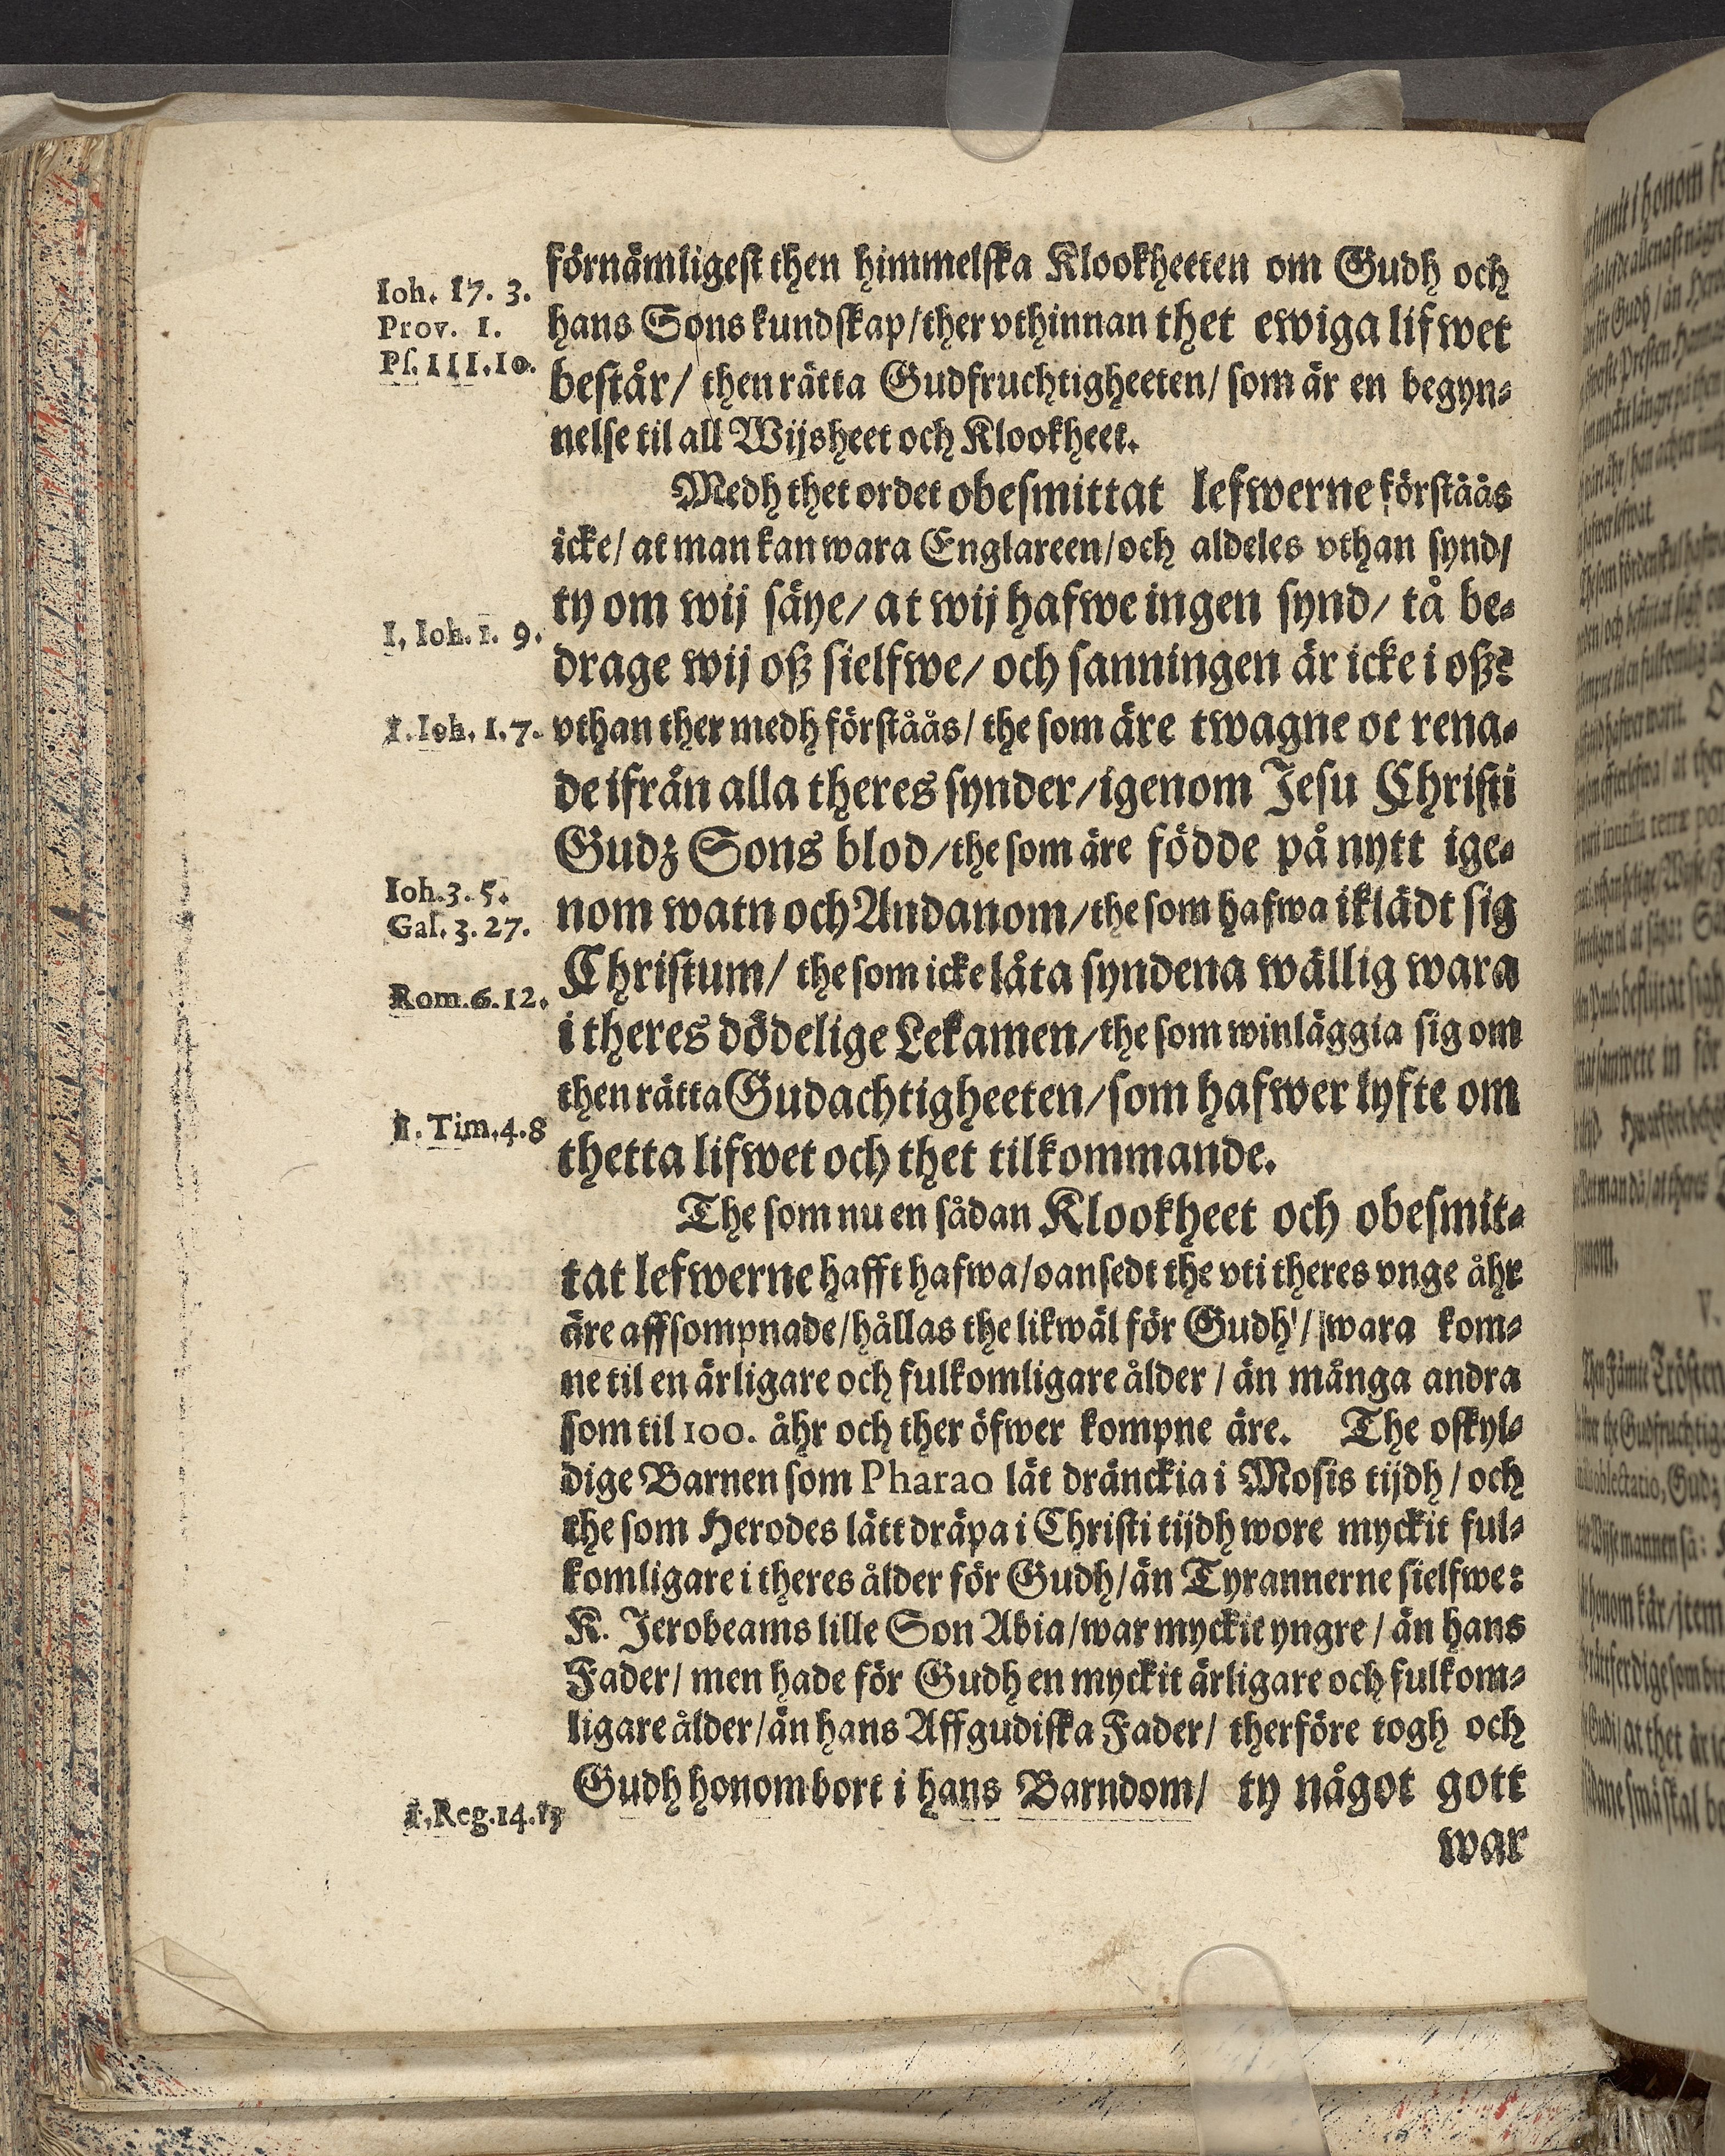 förnämligest then himmelska Klookheeten om Gudh och
Ioh. 17. 3.
hans Sons kundskap/ther vthinnan thet ewiga lifwet
Prov. 1.
består/ then rätta Gudfruchtigheeten/ som är en begyn-
Ps. 111. 10.
nelse til all Wijsheet och Klookheet.
Medh thet ordet obesmittat lefwerne förstäås
icke/ at man kan wara Englareen/och aldeles vthan synd/
ty om wij säye/ at wij hafwe ingen synd/ tå be-
1, Ioh. 1. 9.
drage wij oß sielfwe/ och sanningen är icke i oß:
1. Ioh. 1. 7.
vthan ther medh förståås/ the som äre twagne oc rena-
de ifrån alla theres synder/igenom Jesu Christi
Gudz Sons blod/the som äre födde på nytt ige-
Ioh. 3. 5.
nom watn och Andanom/the som hafwa iklädt sig
Gal. 3. 27.
Christum/ the som icke låta syndena wällig wara
Rom. 6. 12.
i theres dödelige Lekamen/the som winläggia sig om
then rätta Gudachtigheeten/som hafwer lyfte om
1. Tim. 4. 8
thetta lifwet och thet tilkommande.
The som nu en sådan Klookheet och obesmit-
tat lefwerne hafft hafwa/oansedt the vti theres vnge åhr
äre affsompnade/hållas the likwäl för Gudh/ wara kom-
ne til en ärligare och fulkomligare ålder / än många andra
som til 100. åhr och ther öfwer kompne äre. The oskyl-
dige Barnen som Pharao lät dränckia i Mosis tijdh / och
the som Herodes lätt dräpa i Christi tijdh wore myckit ful-
komligare i theres ålder för Gudh/än Tyrannerne sielfwe:
K. Jerobeams lille Son Abia/war myckit yngre / än hans
Fader/ men hade för Gudh en myckit ärligare och fulkom-
ligare ålder/än hans Affgudiska Fader/ therföre togh och
Gudh honom bort i hans Barndom/ ty något gott
1. Reg. 14. 13
war